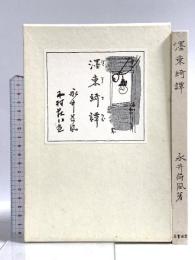 濹東綺譚
永井荷風
木村荘八画
濹東綺譚
永井荷風著